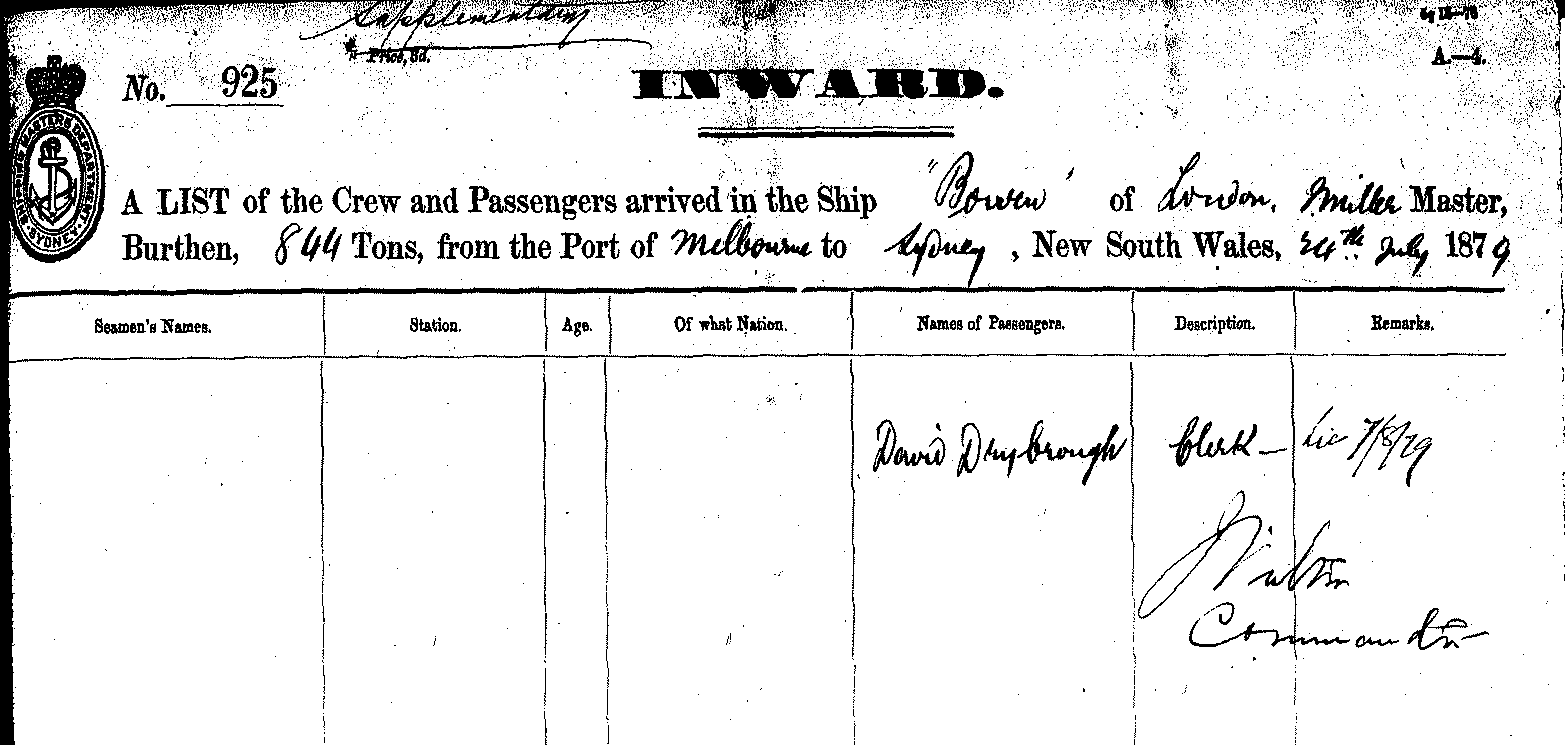 Supplementary
Price, 3d.
A.—4.
No. 925
INWARD.
SHIPPING MASTERS DEPARTMENT SYDNEY
A LIST of the Crew and Passengers arrived in the Ship "Bowen" of London, Miller Master,
Burthen, 844 Tons, from the Port of Melbourne to Sydney, New South Wales, 24th July 1879
Seamen's Names. Station. Age. Of what Nation. Names of Passengers. Description. Remarks.
David Drybrough Clerk — 7/8/79
Commander